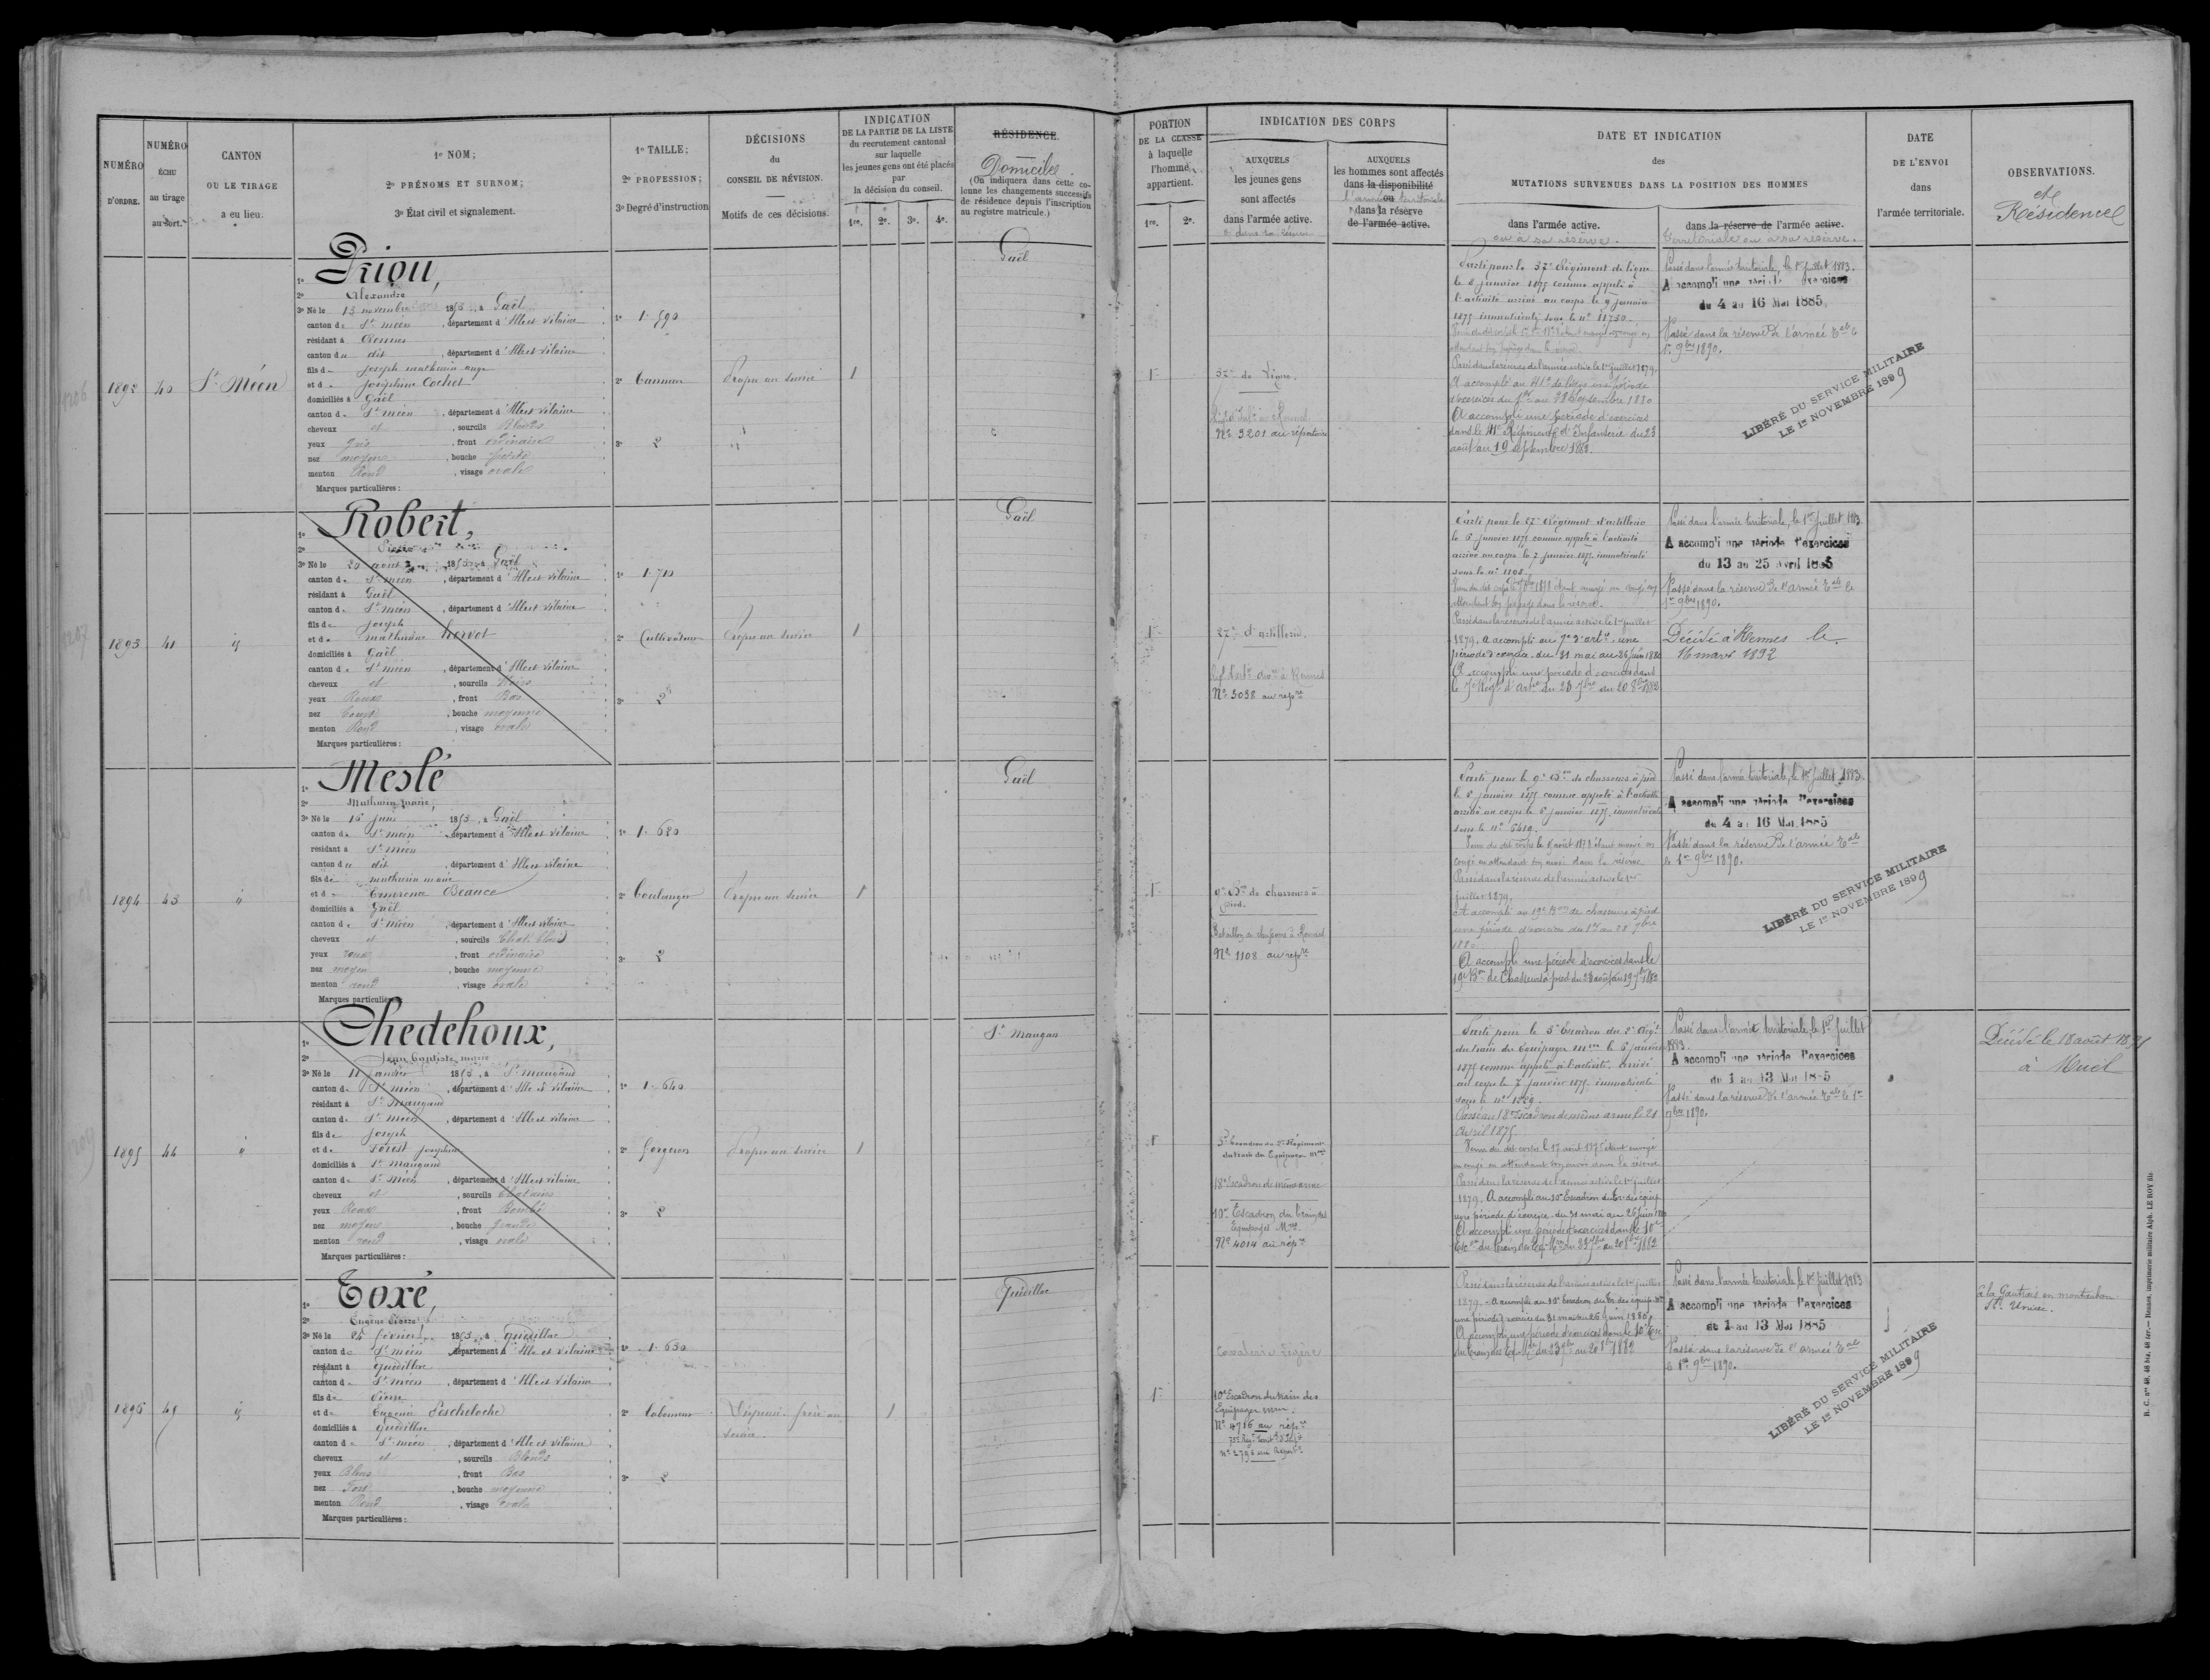 NUMÉRO
D'ORDRE.
NUMÉRO
ÉCHU
au tirage
au sort.
CANTON
OU LE TIRAGE
a eu lieu.
1º NOM;
2º PRÉNOMS ET SURNOM;
3º État civil et signalement.
1º TAILLE;
2º PROFESSION;
3º Degré d'instruction
DÉCISIONS
du
CONSEIL DE RÉVISION.
Motifs de ces décisions.
INDICATION
DE LA PARTIE DE LA LISTE
du recrutement cantonal
sur laquelle
les jeunes gens ont été placés
par
la décision du conseil.
1re. 2e. 3e. 4e.
RÉSIDENCE.
Domicile.
(On indiquera dans cette colonne les changements successifs
de résidence depuis l'inscription
au registre matricule.)
PORTION
DE LA CLASSE
à laquelle
l'homme
appartient.
1re. 2e.
INDICATION DES CORPS
AUXQUELS
les jeunes gens
sont affectés
dans l'armée active.
AUXQUELS
les hommes sont affectés
dans la disponibilité
ou
dans la réserve
de l'armée active.
DATE ET INDICATION
des
MUTATIONS SURVENUES DANS LA POSITION DES HOMMES
dans l'armée active.
ou à sa réserve.
dans la réserve de l'armée active.
territoriale ou à sa réserve.
DATE
DE L'ENVOI
dans
l'armée territoriale.
OBSERVATIONS.
et
Résidence
1892 40 St Méen
Priou,
2º Alexandre
3º Né le 13 novembre 1853, à Gaël
canton de St méen, département d'Ille et Vilaine
résidant à Rennes
canton du dit, département d'Ille et Vilaine
fils de Joseph mathurin ange
et de Joséphine Cochet
domiciliés à Gaël
canton de St méen, département d'Ille et Vilaine
cheveux et, sourcils Blonds
yeux gris, front ordinaire
nez moyen, bouche petite
menton Rond, visage ovale
Marques particulières :
1º 1.590
2º Tanneur
3º 2
Propre au service
1
Gaël
1re
37e de Ligne.
Nº 3201 au répertoire
Parti pour le 37e Régiment de ligne
le 6 janvier 1875 comme appelé à
l'activité arrivé au corps le 9 janvier
1875 immatriculé sous le nº 11730.
Passé dans la réserve de l'armée active le 1er juillet 1879.
A accompli au 41e de ligne une période
d'exercices du 1er au 28 septembre 1880
A accompli une période d'exercices
dans le 41e Régiment d'Infanterie du 23
août au 19 septembre 1882.
Passé dans l'armée territoriale, le 1er juillet 1883.
A accompli une période d'exercices
du 4 au 16 Mai 1885
Passé dans la réserve de l'armée tale le
1er 9bre 1890.
LIBÉRÉ DU SERVICE MILITAIRE
LE 1er NOVEMBRE 1899
1893 41 id
Robert,
3º Né le 20 août 1853, à Gaël
canton de St méen, département d'Ille et Vilaine
résidant à Gaël
canton de St méen, département d'Ille et Vilaine
fils de Joseph
et de mathurine hervot
domiciliés à Gaël
canton de St méen, département d'Ille et Vilaine
cheveux et, sourcils Noirs
yeux Roux, front Bas
nez Court, bouche moyenne
menton Rond, visage ovale
Marques particulières :
1º 1.710
2º Cultivateur
3º 2
Propre au service
1
Gaël
1re
27e d'artillerie.
Nº 3038 au repre
Parti pour le 27e Régiment d'artillerie
le 6 janvier 1875 comme appelé à l'activité
arrivé au corps le 7 janvier 1875, immatriculé
sous le nº 1108.
Passé dans la réserve de l'armée active le 1er juillet
1879. A accompli au 7e d'artie une
période d'exercice du 31 mai au 26 juin 1880
A accompli une période d'exercices dans
le 7e Régt d'Artie du 23 7bre au 20 8bre 1882
Passé dans l'armée territoriale, le 1er juillet 1883.
A accompli une période d'exercices
du 13 au 25 Avril 1885
Passé dans la réserve de l'armée tale le
1er 9bre 1890.
Décédé à Rennes le
16 mars 1892
1894 43 id
Meslé
2º Mathurin marie,
3º Né le 16 juin 1853, à Gaël
canton de St méen, département d'Ille et Vilaine
résidant à St méen
canton du dit, département d'Ille et Vilaine
fils de mathurin marie
et de Emerence Beancé
domiciliés à Gaël
canton de St méen, département d'Ille et Vilaine
cheveux et, sourcils Chat. blond
yeux roux, front ordinaire
nez moyen, bouche moyenne
menton rond, visage ovale
Marques particulières :
1º 1.680
2º Boulanger
3º 2
Propre au service
1
Gaël
1re
9e Bon de chasseurs à
pied.
Bataillon de chasseurs à Rennes
Nº 1108 au repre
Parti pour le 9e Bon de chasseurs à pied
le 6 janvier 1875 comme appelé à l'activité
arrivé au corps le 8 janvier 1875, immatriculé
sous le nº 6419.
Passé dans la réserve de l'armée active le 1er
juillet 1879.
A accompli au 19e Bon de chasseurs à pied
une période d'exercices du 1er au 28 7bre
1880
A accompli une période d'exercices dans le
19e Bon de Chasseurs à pied du 23 août au 19 7bre 1882
Passé dans l'armée territoriale, le 1er juillet 1883.
A accompli une période d'exercices
du 4 au 16 Mai 1885
Passé dans la réserve de l'armée tale
le 1er 9bre 1890.
LIBÉRÉ DU SERVICE MILITAIRE
LE 1er NOVEMBRE 1899
1895 44 id
Chedehoux,
2º Jean baptiste marie
3º Né le 11 janvier 1853, à St maugand
canton de St méen, département d'Ille et Vilaine
résidant à St Maugand
canton de St méen, département d'Ille et Vilaine
fils de Joseph
et de Porest Joséphine
domiciliés à St Maugand
canton de St Méen, département d'Ille et Vilaine
cheveux et, sourcils Châtains
yeux Roux, front Bombé
nez moyen, bouche grande
menton rond, visage ovale
Marques particulières :
1º 1.640
2º forgeron
3º 2
Propre au service
1
St Maugan
1re
5e Escadron du 2e Régiment
du train des Equipages mres
18e Escadron de même arme
10e Escadron du train des
Equipages Mres
Nº 4014 au repre
Parti pour le 5e Escadron du 2e Régt
du train des Equipages mres le 6 janvier
1875 comme appelé à l'activité, arrivé
au corps le 7 janvier 1875, immatriculé
sous le nº 1529.
Passé au 18e Escadron de même arme le 21
Avril 1875
Passé dans la réserve de l'armée active le 1er juillet
1879. A accompli au 10e Escadron du Tr. des équip
une période d'exercice du 31 mai au 26 juin 1880
A accompli une période d'exercices dans le 10e
Esc. du train des Eq. Mres du 23 7bre au 20 8bre 1882
Passé dans l'armée territoriale, le 1er juillet
1883.
A accompli une période d'exercices
du 1 au 13 Mai 1885
Passé dans la réserve de l'armée tale le 1er
9bre 1890.
Décédé le 18 août 1891
à Muel
1896 45 id
Toxé,
2º Eugène Pierre
3º Né le 24 février 1853, à Quédillac
canton de St méen, département d'Ille et Vilaine
résidant à Quédillac
canton de St méen, département d'Ille et Vilaine
fils de Pierre
et de Eugénie Pescheloche
domiciliés à Quédillac
canton de St méen, département d'Ille et Vilaine
cheveux et, sourcils Blonds
yeux Bleus, front Bas
nez Fort, bouche moyenne
menton Rond, visage ovale
Marques particulières :
1º 1.630
2º Laboureur
3º 2
Dispensé. frère au
service.
1
Quédillac
1re
Cavalerie légère
10e Escadron du train des
Equipages mres.
Nº 4716 au repre
Passé dans la réserve de l'armée active le 1er juillet
1879. A accompli au 10e Escadron du Tr. des équip. mres
une période d'exercices du 31 mai au 26 juin 1880
A accompli une période d'exercices dans le 10e Esc
du train des Eq. Mres du 23 7bre au 20 8bre 1882
Passé dans l'armée territoriale le 1er juillet 1883
A accompli une période d'exercices
du 1 au 13 Mai 1885
Passé dans la réserve de l'armée tale
le 1er 9bre 1890.
LIBÉRÉ DU SERVICE MILITAIRE
LE 1er NOVEMBRE 1899
à la Gautrais en montauban
R. C. nos 46, 46 bis, 46 ter. — Rennes, imprimerie militaire Alph. LE ROY fils